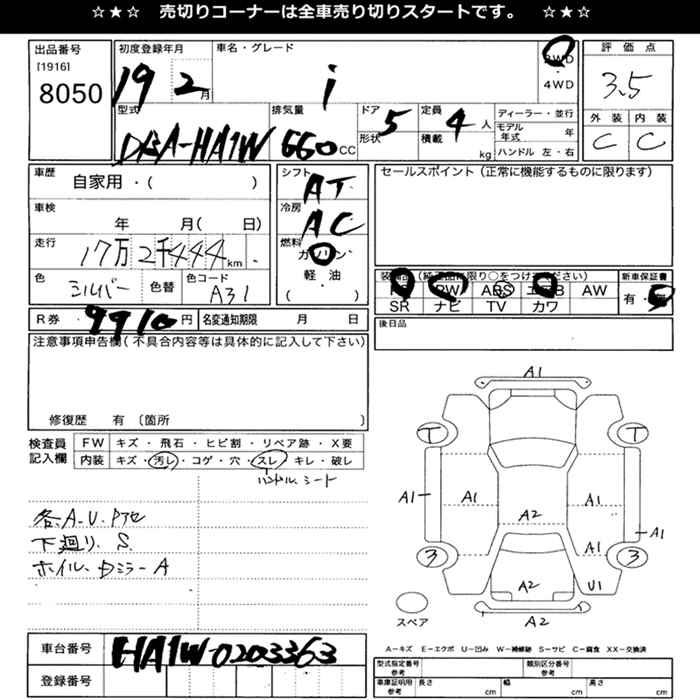 ☆★☆ 売切りコーナーは全車売り切りスタートです。 ☆★☆
出品番号 初度登録年月 車名・グレード 2WD 評価点
[1916] 8050 19 2月 i 4WD 3.5
型式 排気量 ドア 定員 ディーラー・並行 外装 内装
DBA-HA1W 660 CC 5 4人 モデル年式 年 C C
形状 積載 kg ハンドル 左・右
車歴 自家用・( ) シフト AT セールスポイント (正常に機能するものに限ります)
車検 年 月( 日) 冷房 AC
走行 17万2千444km 燃料 ガソリン
軽・油
( )
色 シルバー 色替 色コード A31
装備品(純正品に限り○をつけてください) 新車保証書
PW ABS エアB AW 有・無
SR ナビ TV カワ
R券 9910円 名変通知期限 月 日 後日品
注意事項申告欄(不具合内容等は具体的に記入して下さい)
修復歴 有 (箇所 )
検査員記入欄 FW キズ・飛石・ヒビ割・リペア跡・X要
内装 キズ・汚レ・コゲ・穴・スレ・キレ・破レ
ハンドル シート
各A.U.Pアセ
下廻り、S
ホイル、ドミラーA
A1
T T
A1 A1 A1 A1
A2
A1
3 3
A2 U1
スペア A2
A-キズ E-エクボ U-凹み W-補修跡 S-サビ C-腐食 XX-交換済
車台番号 HA1W-0203363
登録番号
型式指定番号 参考 類別区分番号 参考
車庫証明用 参考 長さ cm 幅 cm 高さ cm